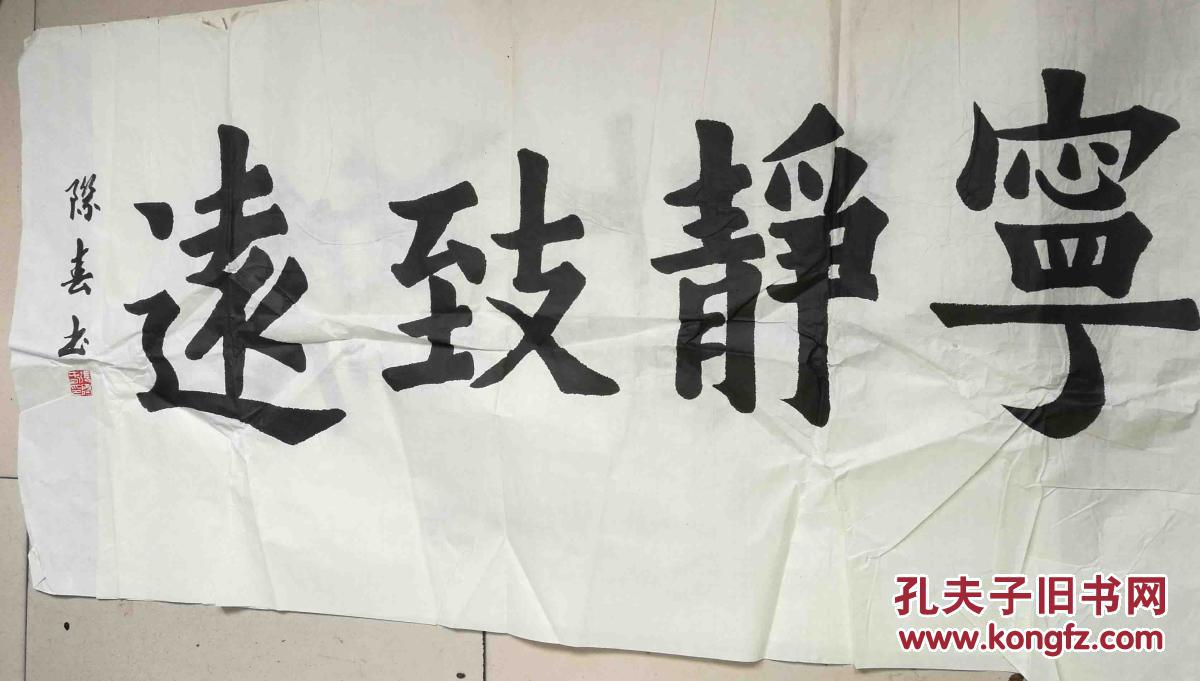 寧靜致遠
際春书
孔夫子旧书网
www.kongfz.com